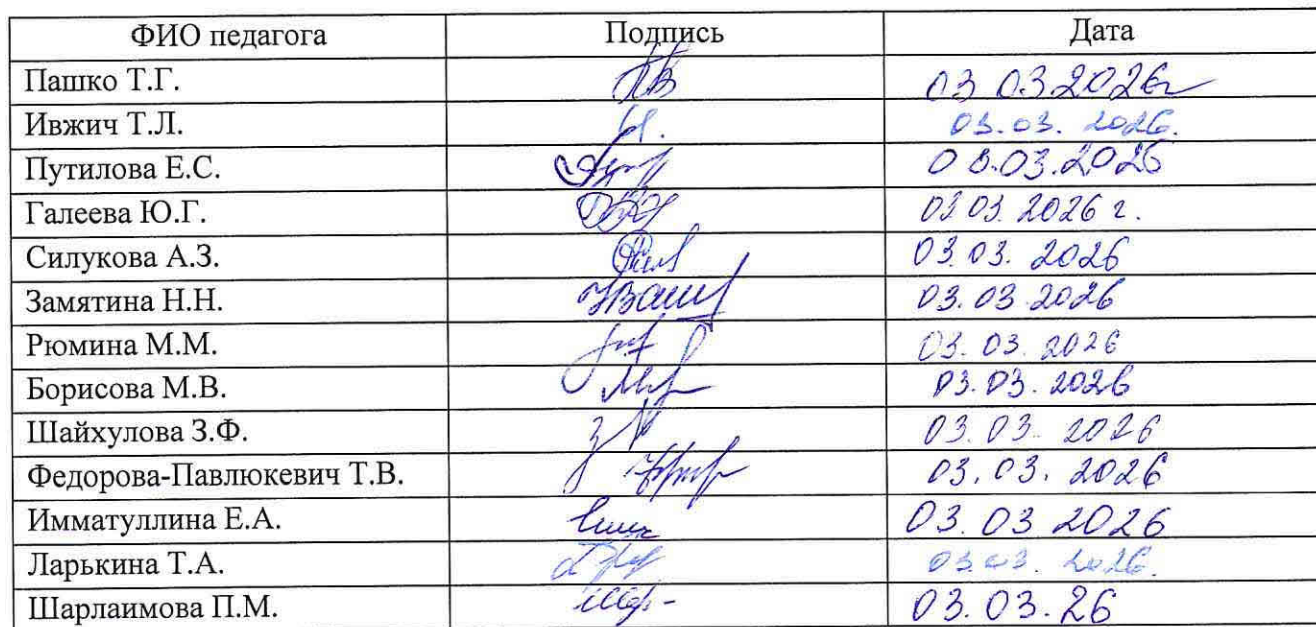 ФИО педагога Подпись Дата
Пашко Т.Г. 03 03 2026г
Ивжич Т.Л. 03.03. 2026.
Путилова Е.С. 03.03.2026
Галеева Ю.Г. 03 03. 2026 г.
Силукова А.З. 03.03. 2026
Замятина Н.Н. 03.03 2026
Рюмина М.М. 03. 03. 2026
Борисова М.В. 03.03. 2026
Шайхулова З.Ф. 03.03. 2026
Федорова-Павлюкевич Т.В. 03.03. 2026
Имматуллина Е.А. 03.03 2026
Ларькина Т.А. 03.03. 2026.
Шарлаимова П.М. 03.03.26